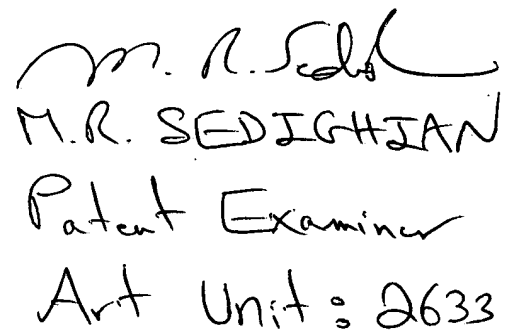 M. R. Sedighian
M.R. SEDIGHIAN
Patent Examiner
Art Unit: 2633